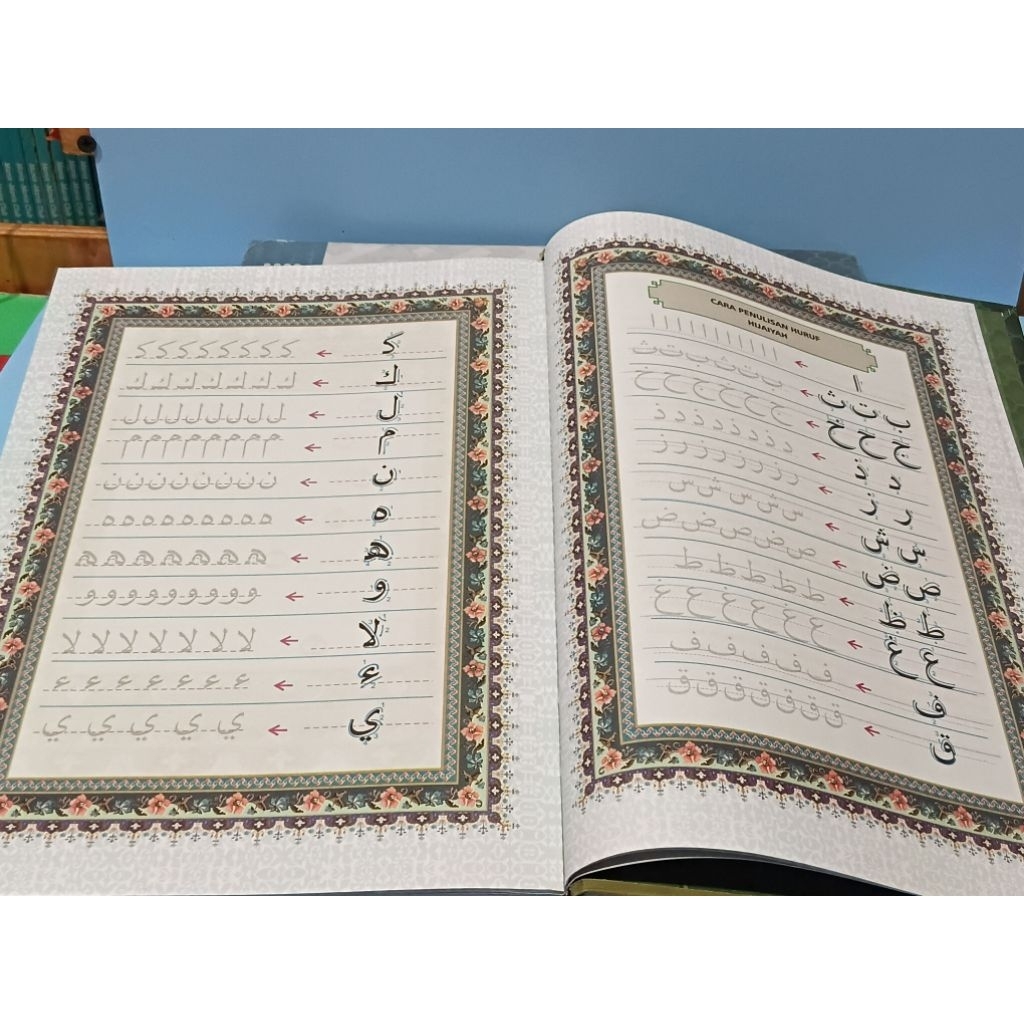 CARA PENULISAN HURUF
HIJAIYAH
ا ← ا ا ا ا ا ا ا ا ا ا
ب ت ث ← ب ت ث ب ت ث
ج ح خ ← ج ح خ ج ح خ
د ذ ←
ر ز ←
س ش ←
ص ض ←
ط ظ ←
ع غ ←
ف ← ف ف ف ف ف ف
ق ← ق ق ق ق ق ق
ک ← ک ک ک ک ک ک ک ک
ك ← ك ك ك ك ك ك ك
ل ← ل ل ل ل ل ل ل ل
م ← م م م م م م م م
ن ← ن ن ن ن ن ن ن ن
ه ← ه ه ه ه ه ه ه ه ه
ھ ← ھ ھ ھ ھ ھ ھ ھ
و ← و و و و و و و و
لا ← لا لا لا لا لا لا لا
ء ← ء ء ء ء ء ء ء
ي ← ي ي ي ي ي